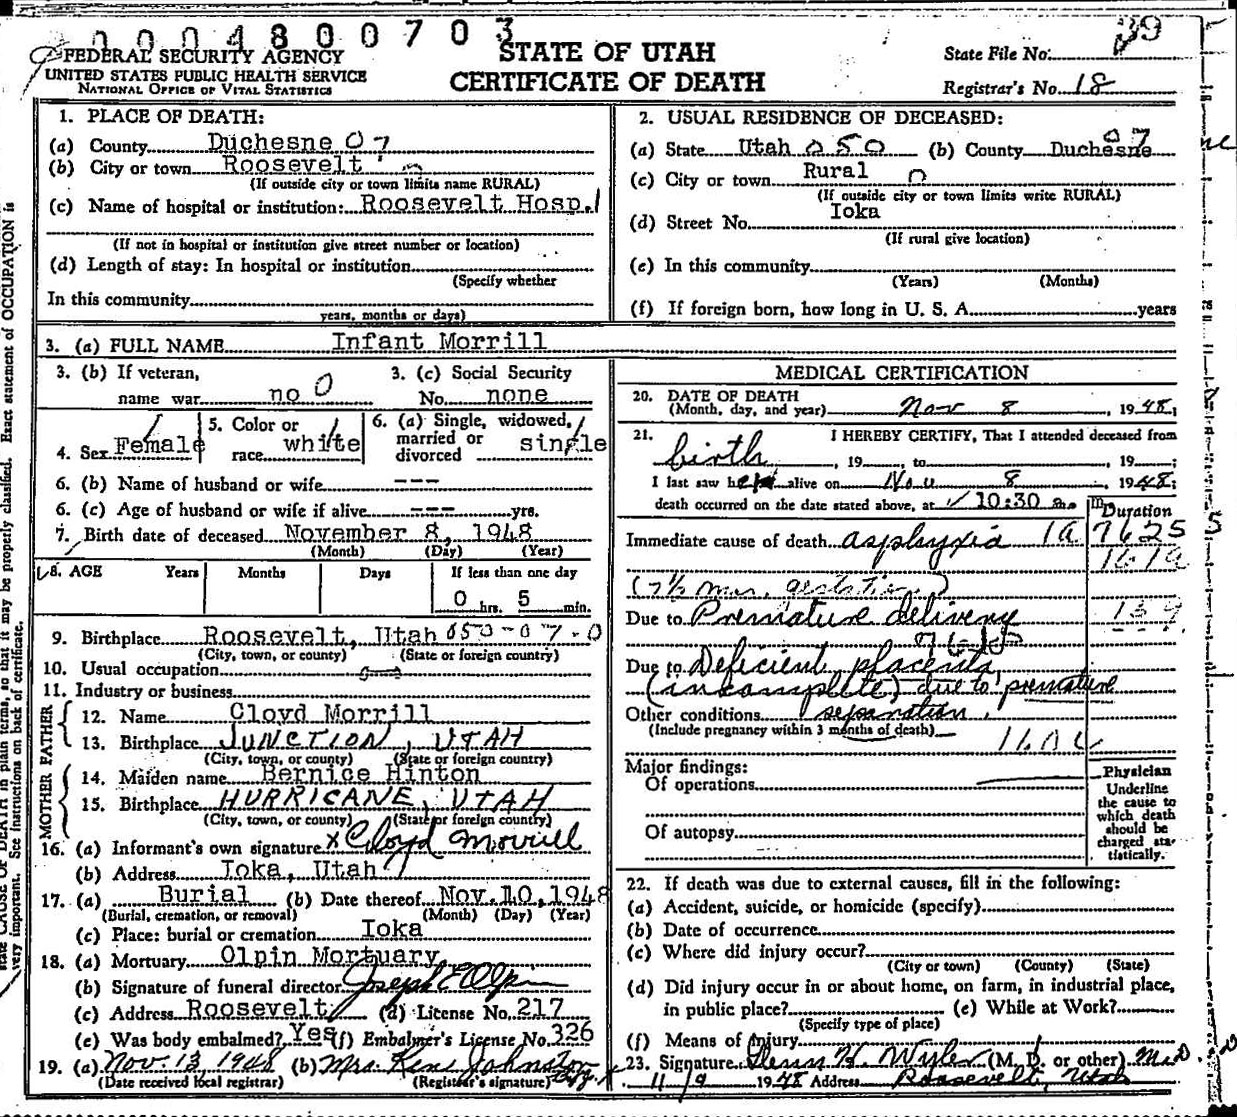 0 0 0 4 8 0 0 7 0 3
FEDERAL SECURITY AGENCY
UNITED STATES PUBLIC HEALTH SERVICE
NATIONAL OFFICE OF VITAL STATISTICS
STATE OF UTAH
CERTIFICATE OF DEATH
State File No. 39
Registrar's No. 18
1. PLACE OF DEATH:
(a) County Duchesne 07
(b) City or town Roosevelt
(If outside city or town limits name RURAL)
(c) Name of hospital or institution: Roosevelt Hosp.
(If not in hospital or institution give street number or location)
(d) Length of stay: In hospital or institution
(Specify whether
In this community
years, months or days)
2. USUAL RESIDENCE OF DECEASED:
(a) State Utah 050 (b) County Duchesne 07
(c) City or town Rural
(If outside city or town limits write RURAL)
(d) Street No. Ioka
(If rural give location)
(e) In this community
(Years) (Months)
(f) If foreign born, how long in U. S. A. years
3. (a) FULL NAME Infant Morrill
3. (b) If veteran, name war no 0
3. (c) Social Security No. none
4. Sex Female
5. Color or race white
6. (a) Single, widowed, married or divorced single
6. (b) Name of husband or wife ---
6. (c) Age of husband or wife if alive --- yrs.
7. Birth date of deceased November 8, 1948
(Month) (Day) (Year)
8. AGE Years Months Days If less than one day
0 hrs. 5 min.
9. Birthplace Roosevelt, Utah 050-07-0
(City, town, or county) (State or foreign country)
10. Usual occupation
11. Industry or business
FATHER
12. Name Cloyd Morrill
13. Birthplace JUNCTION, UTAH
(City, town, or county) (State or foreign country)
MOTHER
14. Maiden name Bernice Hinton
15. Birthplace HURRICANE, UTAH
(City, town, or county) (State or foreign country)
16. (a) Informant's own signature x Cloyd Morrill
(b) Address Ioka, Utah
17. (a) Burial (b) Date thereof Nov. 10, 1948
(Burial, cremation, or removal) (Month) (Day) (Year)
(c) Place: burial or cremation Ioka
18. (a) Mortuary Olpin Mortuary
(b) Signature of funeral director Joseph E Olpin
(c) Address Roosevelt (d) License No. 217
(e) Was body embalmed? Yes (f) Embalmer's License No. 326
19. (a) Nov. 13, 1948 (b) Mrs. Johnston
(Date received local registrar) (Registrar's signature)
MEDICAL CERTIFICATION
20. DATE OF DEATH
(Month, day, and year) Nov 8, 1948;
21. I HEREBY CERTIFY, That I attended deceased from
birth, 19 to , 19 ;
I last saw h alive on Nov 8, 1948;
death occurred on the date stated above, at 10:30 a. m.
Duration
Immediate cause of death asphyxia 1a 7625
(7½ mos. gestation)
Due to Premature delivery
Due to Deficient placenta,
(incomplete) due to premature
Other conditions separation.
(Include pregnancy within 3 months of death)
Major findings:
Of operations
Of autopsy
Physician
Underline
the cause to
which death
should be
charged sta-
tistically.
22. If death was due to external causes, fill in the following:
(a) Accident, suicide, or homicide (specify)
(b) Date of occurrence
(c) Where did injury occur?
(City or town) (County) (State)
(d) Did injury occur in or about home, on farm, in industrial place,
in public place? (e) While at Work?
(Specify type of place)
(f) Means of Injury
23. Signature H. Wyler (M. D. or other) M.D.
11/9 1948 Address Roosevelt, Utah
state CAUSE OF DEATH in plain terms, so that it may be properly classified. Exact statement of OCCUPATION is
very important. See instructions on back of certificate.